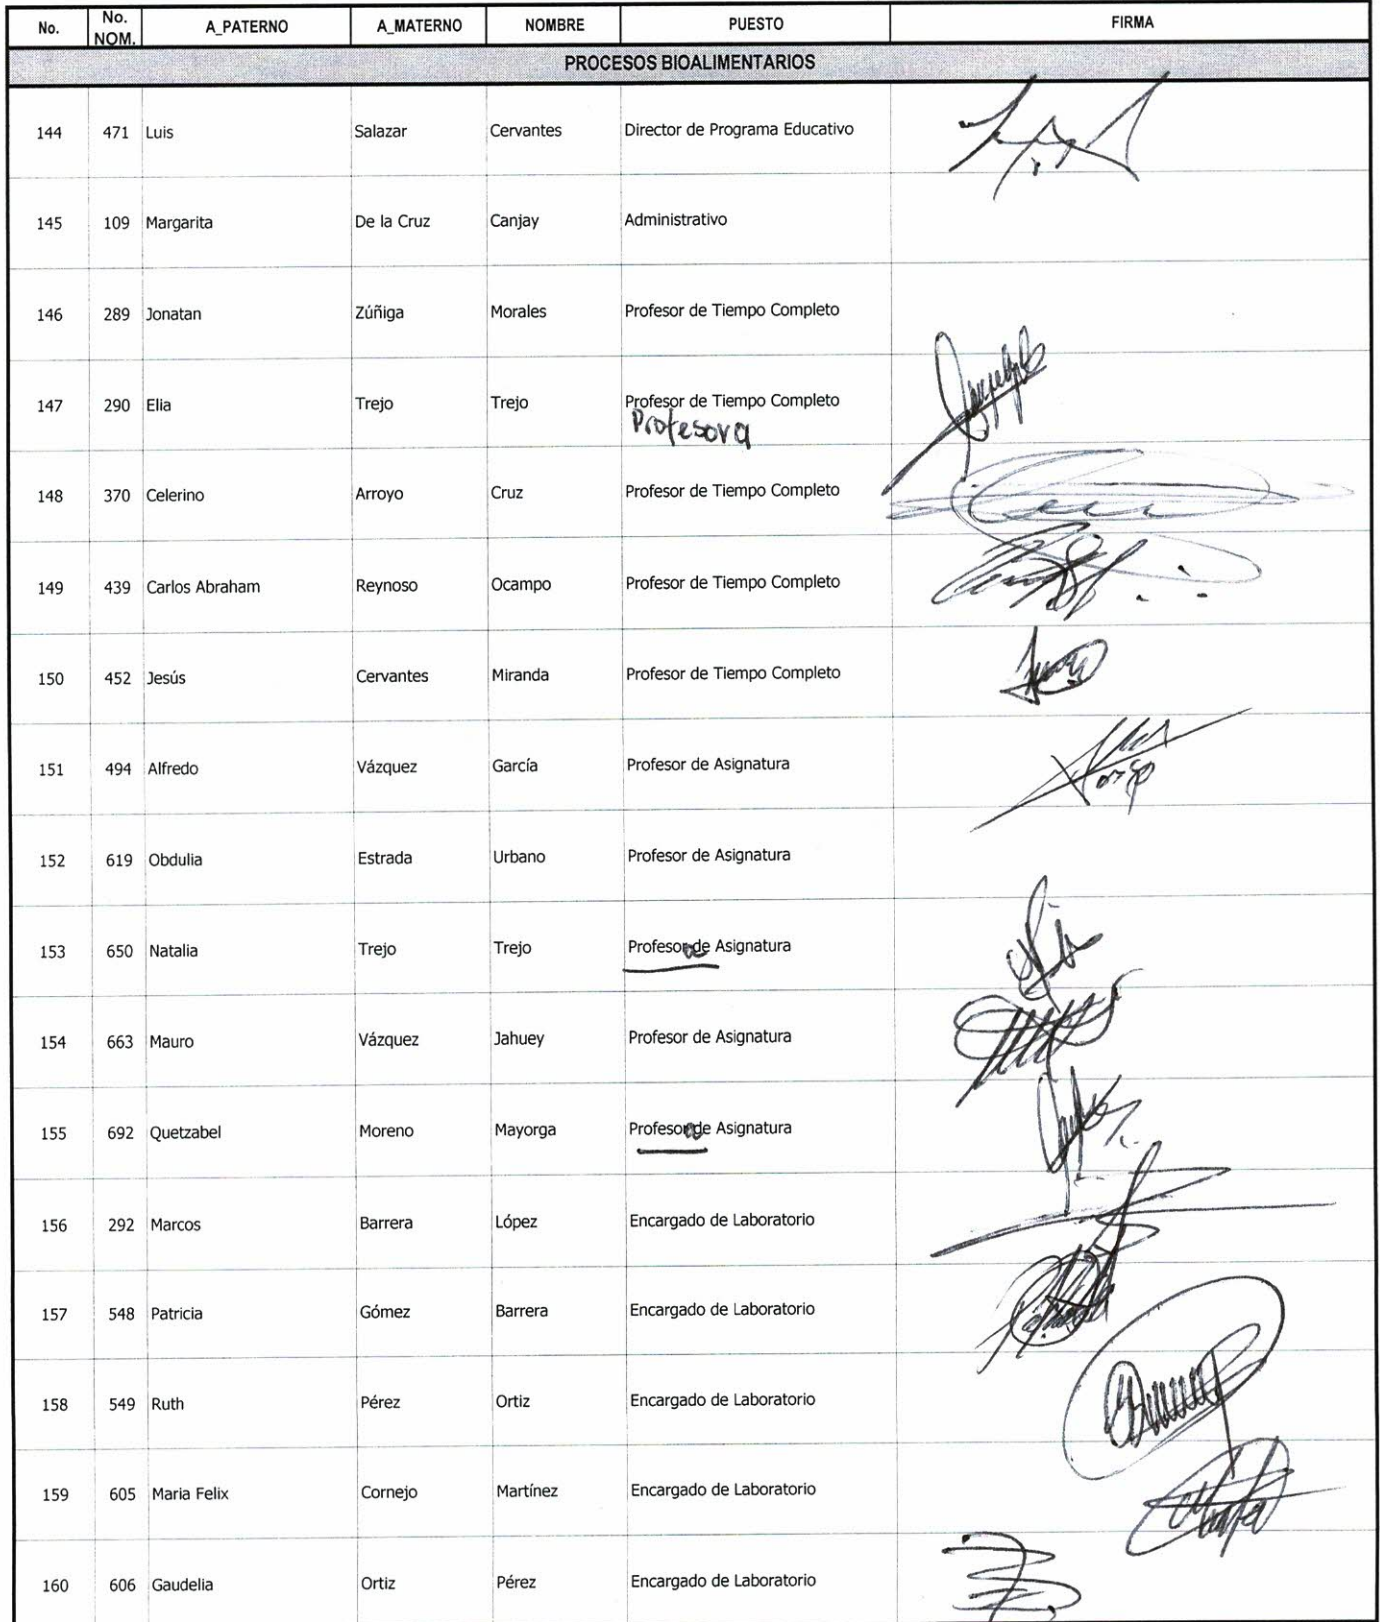 No. No. NOM. A_PATERNO A_MATERNO NOMBRE PUESTO FIRMA
PROCESOS BIOALIMENTARIOS
144 471 Luis Salazar Cervantes Director de Programa Educativo
145 109 Margarita De la Cruz Canjay Administrativo
146 289 Jonatan Zúñiga Morales Profesor de Tiempo Completo
147 290 Elia Trejo Trejo Profesor de Tiempo Completo
Profesora
148 370 Celerino Arroyo Cruz Profesor de Tiempo Completo
149 439 Carlos Abraham Reynoso Ocampo Profesor de Tiempo Completo
150 452 Jesús Cervantes Miranda Profesor de Tiempo Completo
151 494 Alfredo Vázquez García Profesor de Asignatura
152 619 Obdulia Estrada Urbano Profesor de Asignatura
153 650 Natalia Trejo Trejo Profesora de Asignatura
154 663 Mauro Vázquez Jahuey Profesor de Asignatura
155 692 Quetzabel Moreno Mayorga Profesora de Asignatura
156 292 Marcos Barrera López Encargado de Laboratorio
157 548 Patricia Gómez Barrera Encargado de Laboratorio
158 549 Ruth Pérez Ortiz Encargado de Laboratorio
159 605 Maria Felix Cornejo Martínez Encargado de Laboratorio
160 606 Gaudelia Ortiz Pérez Encargado de Laboratorio